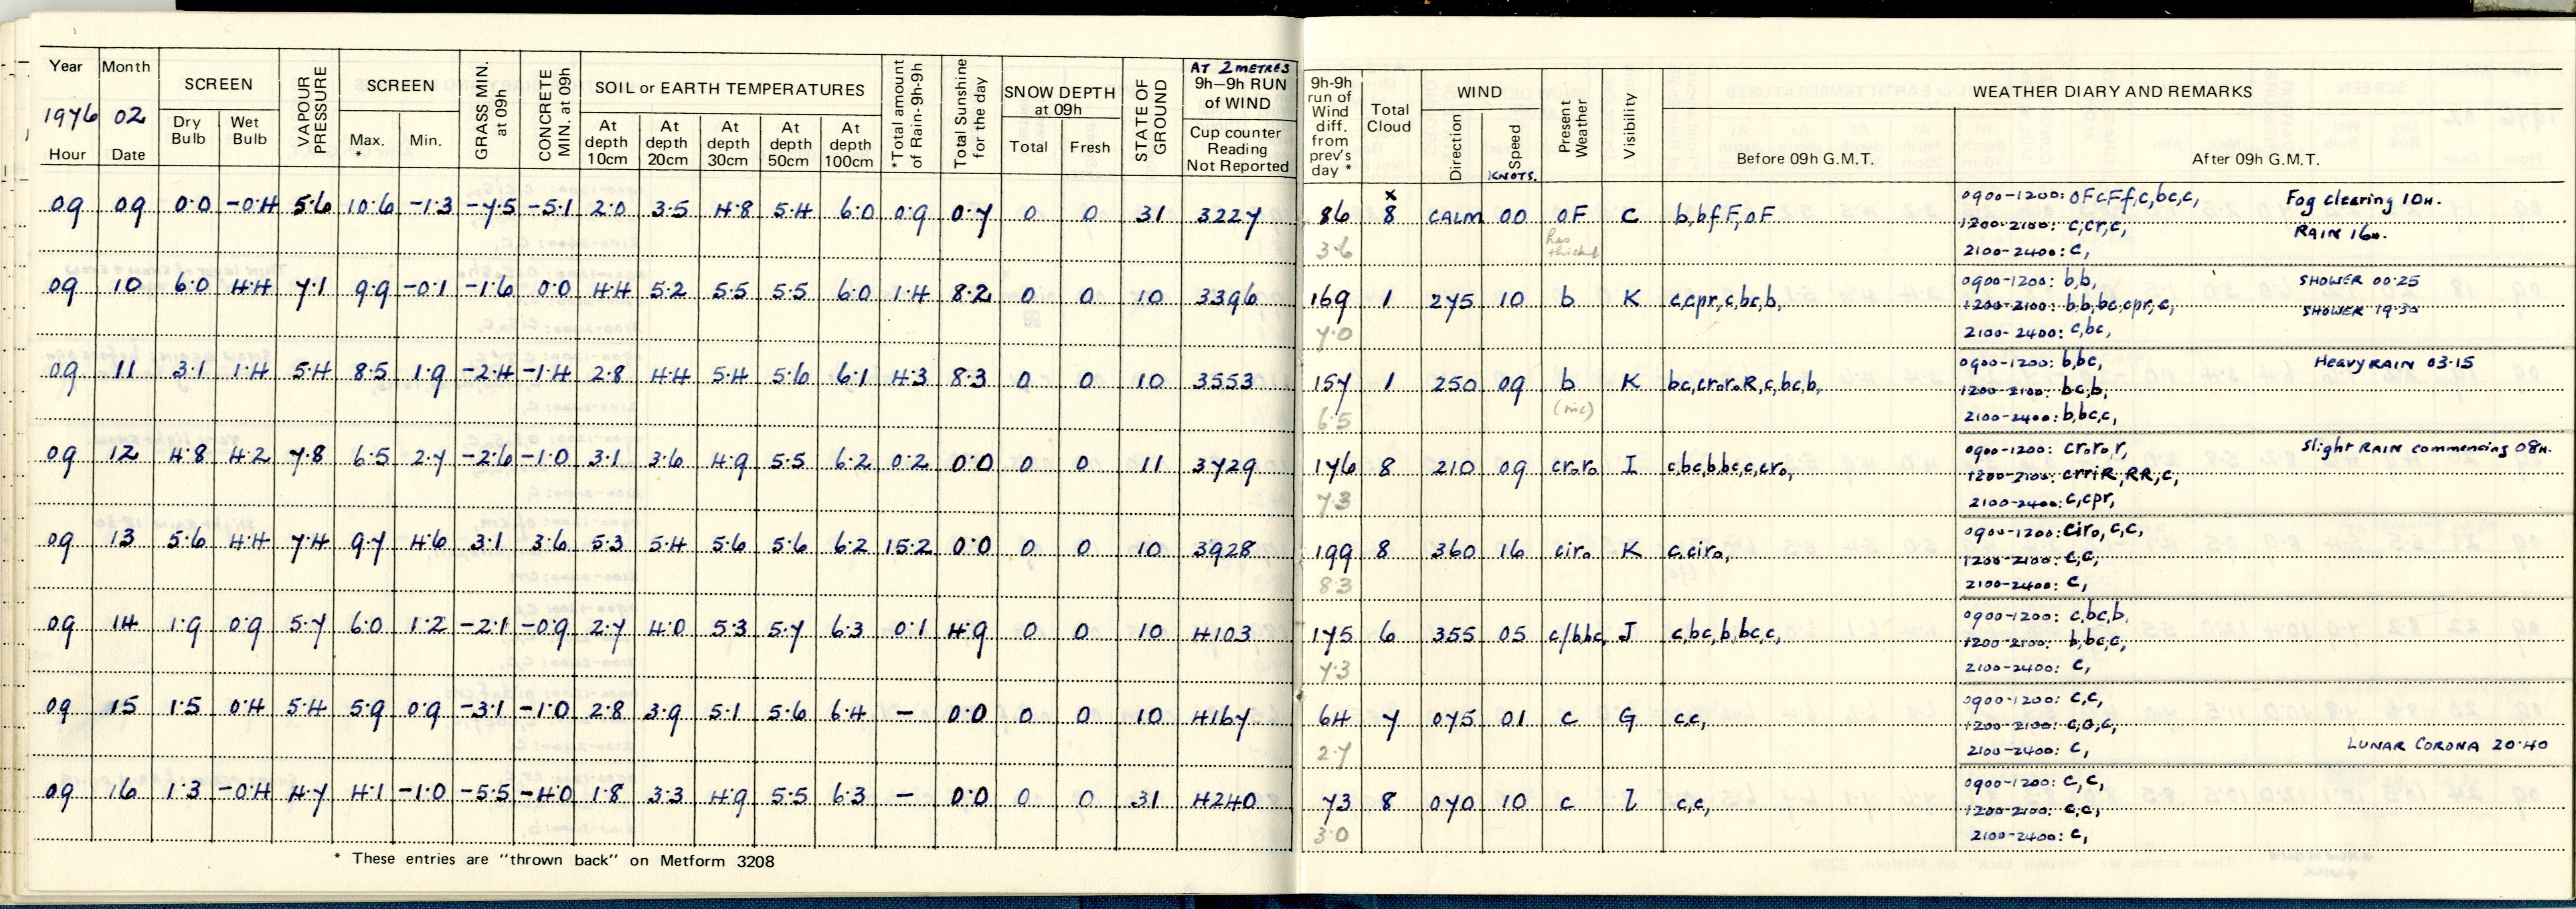 Year Month SCREEN VAPOUR PRESSURE SCREEN GRASS MIN. at 09h CONCRETE MIN. at 09h SOIL or EARTH TEMPERATURES *Total amount of Rain-9h-9h Total Sunshine for the day SNOW DEPTH at 09h STATE OF GROUND AT 2 METRES 9h–9h RUN of WIND 9h-9h run of Wind diff. from prev's day * Total Cloud WIND Present Weather Visibility WEATHER DIARY AND REMARKS
1976 02 Dry Bulb Wet Bulb Max. * Min. At depth 10cm At depth 20cm At depth 30cm At depth 50cm At depth 100cm Total Fresh Cup counter Reading Not Reported Direction Speed KNOTS. Before 09h G.M.T. After 09h G.M.T.
Hour Date
09 09 0.0 -0.4 5.6 10.6 -1.3 -7.5 -5.1 2.0 3.5 4.8 5.4 6.0 0.9 0.7 0 0 31 3227 86 x 8 CALM 00 oF C b,bfF,oF 0900-1200: oFcFf,c,bc,c, Fog clearing 10H.
1200-2100: c,cr,c, RAIN 16H.
3.6 has thicked 2100-2400: c,
09 10 6.0 4.4 7.1 9.9 -0.1 -1.6 0.0 4.4 5.2 5.5 5.5 6.0 1.4 8.2 0 0 10 3396 169 1 275 10 b K c,cpr,c,bc,b, 0900-1200: b,b, SHOWER 00.25
1200-2100: b,b,bc,cpr,c, SHOWER 19.30
7.0 2100-2400: c,bc,
09 11 3.1 1.4 5.4 8.5 1.9 -2.4 -1.4 2.8 4.4 5.4 5.6 6.1 4.3 8.3 0 0 10 3553 157 1 250 09 b K bc,cr₀r₀R,c,bc,b, 0900-1200: b,bc, Heavy RAIN 03.15
1200-2100: bc,b,
6.5 2100-2400: b,bc,c,
09 12 4.8 4.2 7.8 6.5 2.7 -2.6 -1.0 3.1 3.6 4.9 5.5 6.2 0.2 0.0 0 0 11 3729 176 8 210 09 cr₀r₀ I c,bc,b,bc,c,cr₀, 0900-1200: cr₀r₀,r, Slight RAIN commencing 08H.
1200-2100: crriR,RR,c,
7.3 2100-2400: c,cpr,
09 13 5.6 4.4 7.4 9.7 4.6 3.1 3.6 5.3 5.4 5.6 5.6 6.2 15.2 0.0 0 0 10 3928 199 8 360 16 cir₀ K c,cir₀, 0900-1200: cir₀,c,c,
1200-2100: c,c,
8.3 2100-2400: c,
09 14 1.9 0.9 5.7 6.0 1.2 -2.1 -0.9 2.7 4.0 5.3 5.7 6.3 0.1 4.9 0 0 10 4103 175 6 355 05 c/b,bc, J c,bc,b,bc,c, 0900-1200: c,bc,b,
1200-2100: b,bc,c,
7.3 2100-2400: c,
09 15 1.5 0.4 5.4 5.9 0.9 -3.1 -1.0 2.8 3.9 5.1 5.6 6.4 – 0.0 0 0 10 4167 64 7 075 01 c G c,c, 0900-1200: c,c,
1200-2100: c,o,c,
2.7 2100-2400: c, LUNAR CORONA 20.40
09 16 1.3 -0.4 4.7 4.1 -1.0 -5.5 -4.0 1.8 3.3 4.9 5.5 6.3 – 0.0 0 0 31 4240 73 8 070 10 c c,c, 0900-1200: c,c,
1200-2100: c,c,
3.0 2100-2400: c,
* These entries are "thrown back" on Metform 3208